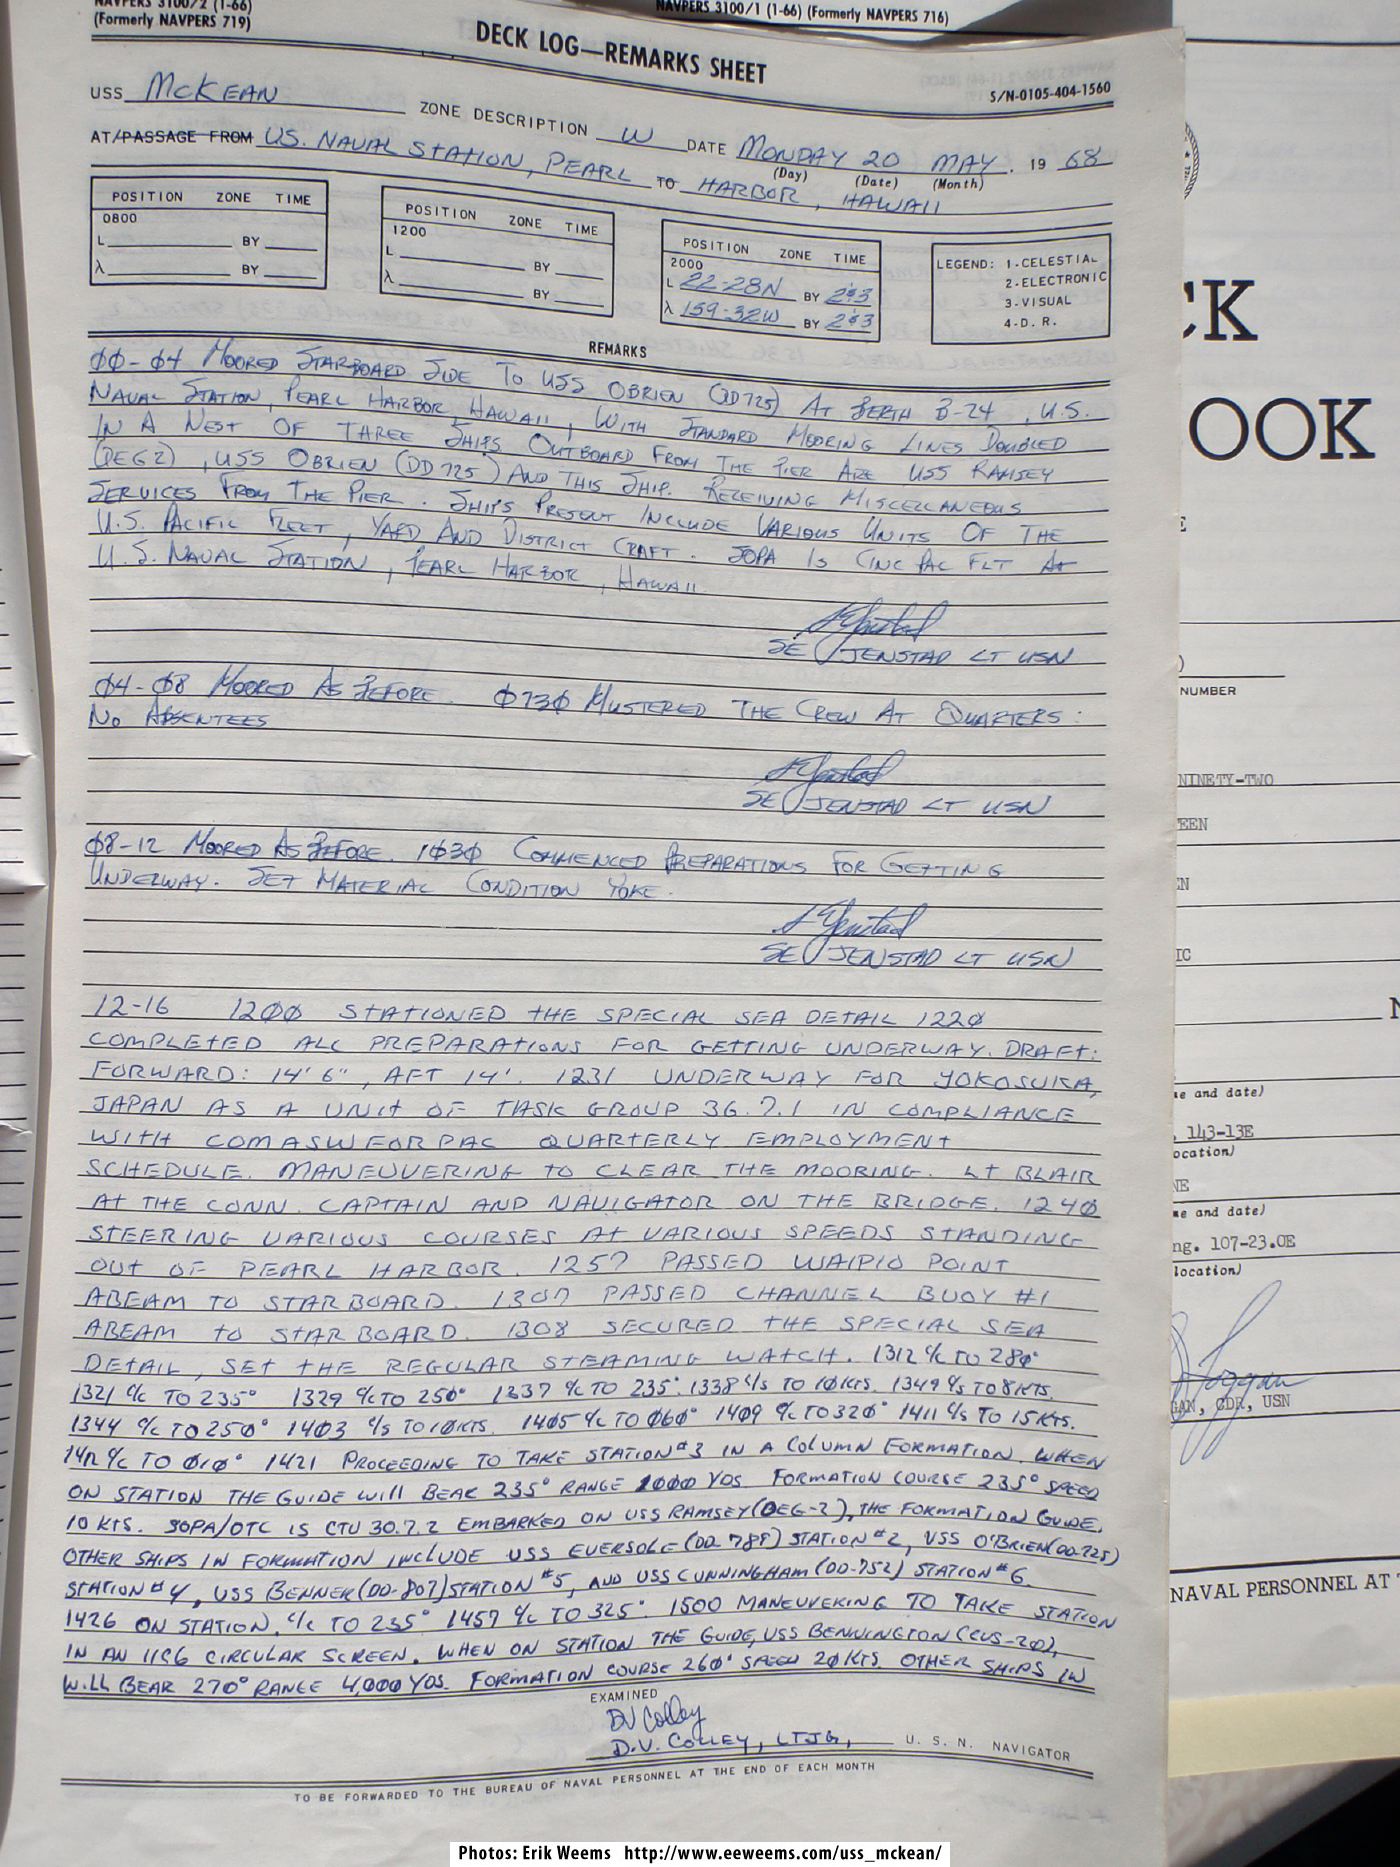 NAVPERS 3100/2 (1-66)
(Formerly NAVPERS 719)
NAVPERS 3100/1 (1-66) (Formerly NAVPERS 716)
DECK LOG—REMARKS SHEET
S/N-0105-404-1560
USS McKEAN ZONE DESCRIPTION W DATE MONDAY 20 MAY 19 68
(Day) (Date) (Month)
AT/PASSAGE FROM U.S. NAVAL STATION, PEARL TO HARBOR, HAWAII
POSITION ZONE TIME
0800
L BY
λ BY
POSITION ZONE TIME
1200
L BY
λ BY
POSITION ZONE TIME
2000
L 22-28N BY 2&3
λ 159-32W BY 2&3
LEGEND: 1-CELESTIAL
2-ELECTRONIC
3-VISUAL
4-D. R.
REMARKS
00-04 MOORED STARBOARD SIDE TO USS OBRIEN (DD725) AT BERTH B-24, U.S.
NAVAL STATION, PEARL HARBOR, HAWAII, WITH STANDARD MOORING LINES DOUBLED
IN A NEST OF THREE SHIPS. OUTBOARD FROM THE PIER ARE USS RAMSEY
(DEG2), USS OBRIEN (DD725) AND THIS SHIP. RECEIVING MISCELLANEOUS
SERVICES FROM THE PIER. SHIPS PRESENT INCLUDE VARIOUS UNITS OF THE
U.S. PACIFIC FLEET, YARD AND DISTRICT CRAFT. SOPA IS CINC PAC FLT AT
U.S. NAVAL STATION, PEARL HARBOR, HAWAII.
SE JENSTAD LT USN
04-08 MOORED AS BEFORE. 0730 MUSTERED THE CREW AT QUARTERS:
NO ABSENTEES
SE JENSTAD LT USN
08-12 MOORED AS BEFORE. 1030 COMMENCED PREPARATIONS FOR GETTING
UNDERWAY. SET MATERIAL CONDITION YOKE.
SE JENSTAD LT USN
12-16 1200 STATIONED THE SPECIAL SEA DETAIL 1220
COMPLETED ALL PREPARATIONS FOR GETTING UNDERWAY. DRAFT:
FORWARD: 14' 6", AFT 14'. 1231 UNDERWAY FOR YOKOSUKA,
JAPAN AS A UNIT OF TASK GROUP 36.7.1 IN COMPLIANCE
WITH COMASWFORPAC QUARTERLY EMPLOYMENT
SCHEDULE. MANEUVERING TO CLEAR THE MOORING. LT BLAIR
AT THE CONN. CAPTAIN AND NAVIGATOR ON THE BRIDGE. 1240
STEERING VARIOUS COURSES AT VARIOUS SPEEDS STANDING
OUT OF PEARL HARBOR. 1257 PASSED WAIPIO POINT
ABEAM TO STARBOARD. 1307 PASSED CHANNEL BUOY #1
ABEAM TO STARBOARD. 1308 SECURED THE SPECIAL SEA
DETAIL, SET THE REGULAR STEAMING WATCH. 1312 C/C TO 280°
1321 C/C TO 235° 1329 C/C TO 250° 1337 C/C TO 235°. 1338 C/S TO 10KTS. 1349 C/S TO 8KTS.
1344 C/C TO 250° 1403 C/S TO 10KTS. 1405 C/C TO 060° 1409 C/C TO 320° 1411 C/S TO 15KTS.
C/C TO 010° 1421 PROCEEDING TO TAKE STATION #3 IN A COLUMN FORMATION. WHEN
ON STATION THE GUIDE WILL BEAR 235° RANGE 1000 YDS. FORMATION COURSE 235° SPEED
10 KTS. SOPA/OTC IS CTU 30.7.2 EMBARKED ON USS RAMSEY (DEG-2), THE FORMATION GUIDE.
OTHER SHIPS IN FORMATION INCLUDE USS EVERSOLE (DD-789) STATION #2, USS O'BRIEN (DD-725)
STATION #4, USS BENNER (DD-807) STATION #5, AND USS CUNNINGHAM (DD-752) STATION #6.
1426 ON STATION. C/C TO 235° 1457 C/C TO 325°. 1500 MANEUVERING TO TAKE STATION
IN AN CIRCULAR SCREEN. WHEN ON STATION THE GUIDE, USS BENNINGTON (CVS-20),
WILL BEAR 270° RANGE 4,000 YDS. FORMATION COURSE 260° SPEED 20 KTS. OTHER SHIPS IN
EXAMINED
DV Colley
D.V. COLLEY, LTJG, U. S. N. NAVIGATOR
TO BE FORWARDED TO THE BUREAU OF NAVAL PERSONNEL AT THE END OF EACH MONTH
CK
OOK
E
)
NUMBER
NINETY-TWO
EEN
EN
IC
N
me and date)
143-13E
ocation)
NE
me and date)
ng. 107-23.0E
location)
GAN, CDR, USN
NAVAL PERSONNEL AT T
Photos: Erik Weems http://www.eeweems.com/uss_mckean/